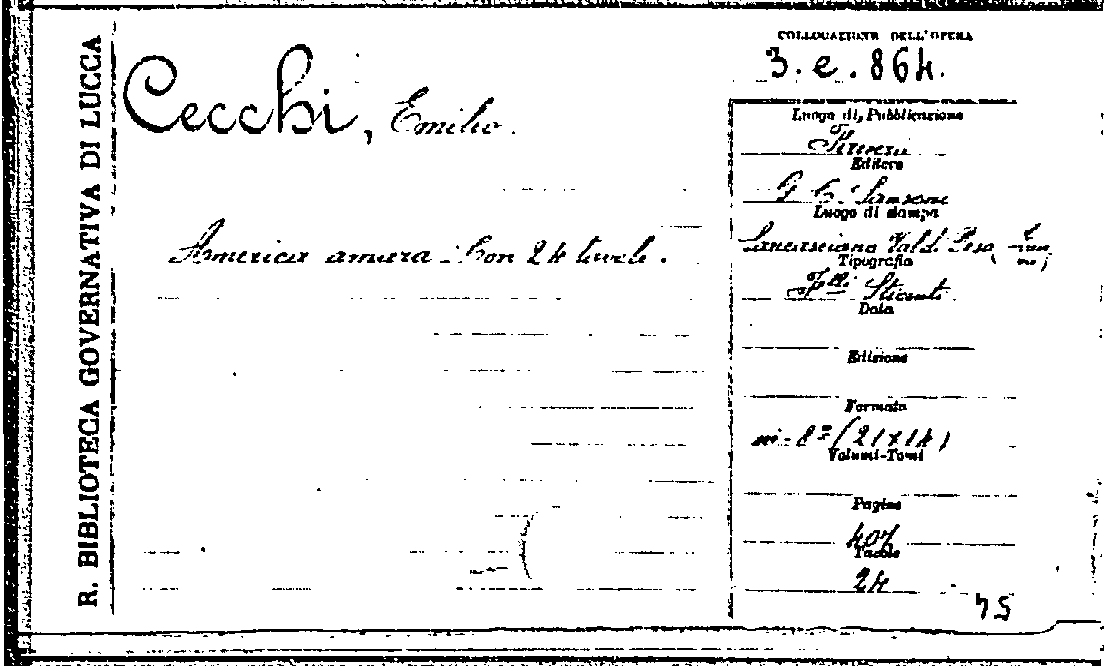 R. BIBLIOTECA GOVERNATIVA DI LUCCA
Cecchi, Emilio.
America amara - Con 24 tavole.
COLLOCAZIONE DELL'OPERA
3. e. 864.
Luogo di Pubblicazione
Firenze
Editore
G. C. Sansoni
Luogo di stampa
Sancasciano Val di Pesa
Tipografia
F.lli Stianti
Data
Edizione
Formato
in-8º (21x14)
Volumi-Tomi
Pagine
407
Tavole
24
54